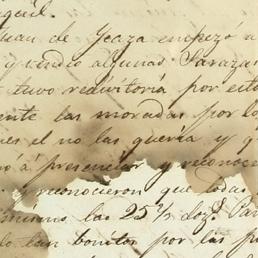 Juan de Ycaza empezó a
y vendio algunas Sarazas
tuvo redivitoria por esto
ente las moradas por lo
es el no las queria y q
ó á presenciar y reconoc
reconocieron que todas
las 25 ½
lo tan bonitos por las p